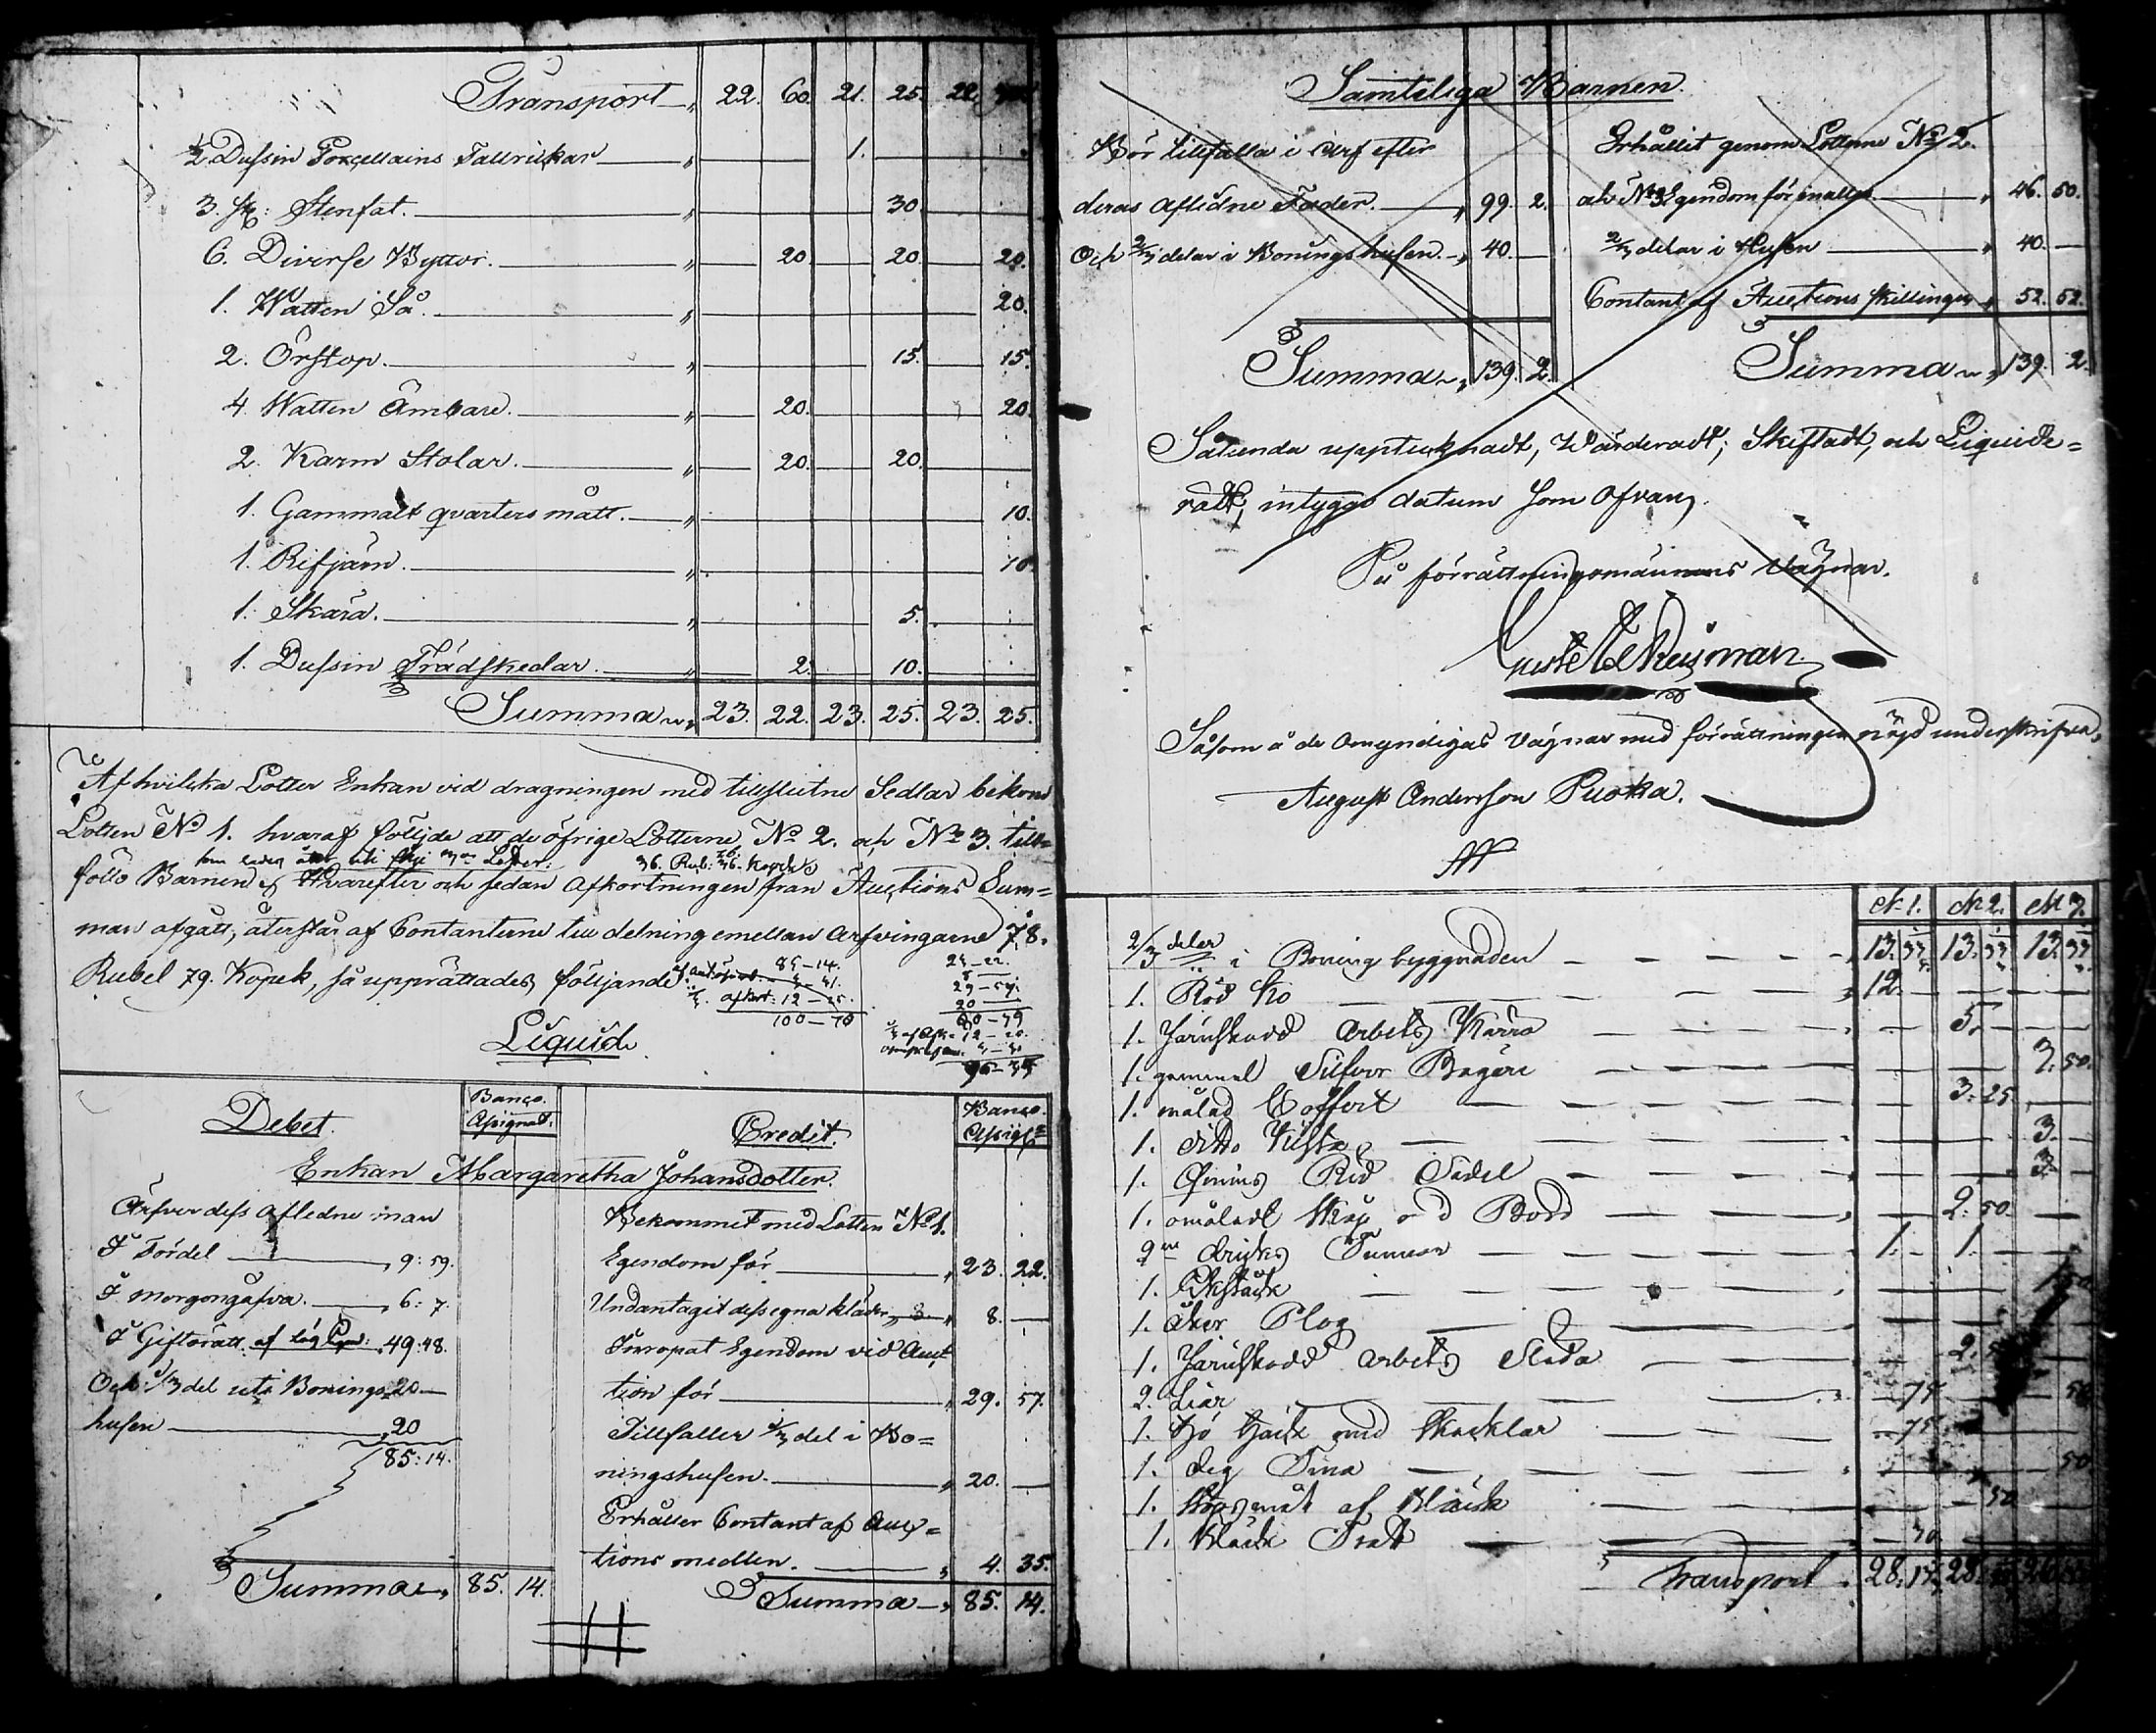 Transport „ 22. 60. 21. 25. 22.
½ Dussin Porcellains Tallrikar „ 1.
3. st: Stenfat. „ 30.
6. Diverse Byttor. „ 20. 20. 20.
1. Watten Så. „ 20.
2. Örstop. „ 15. 15.
4. Watten Ämbare. „ 20. 20.
2. Karm Stolar. „ 20. 20.
1. Gammalt qvarters mått. „ 10.
1. Rifjärn. „ 10.
1. Skära. „ 5.
1. Dussin Trädskedar. „ 2. 10.
Summa „ 23. 22. 23. 25. 23. 25.
Af hvilka Lotter Enkan vid dragningen med tillslutne Sedlar bekom
Lotten No 1. hvaraf följde att de öfrige Lotterne No 2. och No 3. till-
36. Rub: 76. Kopek
föllo Barnen. Hvarefter och sedan Afkortningen från Auctions Sum=
man afgått, återstår af Contanterne till delning emellan Arfvingarne 78.
Rubel 79. Kopek, så upprättades följande
85-14.
afkort: 12-25.
100-70
24-22.
8-
29-57.
20-
80-79
96-35
Liquid.
Debet. Banco. Assignat.
Credit. Banco. Assig
Enkan Margaretha Johansdotter.
Ärfver dess afledne man
I Fördel „ 9: 59.
I Morgongåfva. „ 6: 7.
I Giftorätt af „ 49: 48.
Och ⅓ del uti Bonings 20
husen „ 20
85: 14.
Summa „ 85. 14.
Bekommet med Lotten No 1.
Egendom för „ 23. 22.
Undantagit dess egna kläder „ 8.
Inropat Egendom vid Auc
tion för „ 29. 57.
Tillfaller ⅓ del i Bo=
ningshusen. „ 20.
Erhåller Contant af Auc=
tions medlen. „ 4. 35.
Summa „ 85. 14.
Samteliga Barnen.
Bör tillfalla i Arf efter
deras Aflidne Fader. „ 99. 2.
Och ⅔ delar i Boningshusen. „ 40.
Summa „ 139. 2.
Erhållit genom Lotterne No 2.
och No 3 Egendom för emellan „ 46. 50.
⅔ delar i Husen „ 40.
Contant af Auctions Skillingen „ 52. 52.
Summa „ 139. 2.
Sålunda upptecknadt, Värderadt, Skiftadt, och Liquide=
radt, intygo datum som ofvan,
På förrättningsmännens Vägnar.
Såsom å de Omyndigas Vägnar med förrättningen nöjd underskrifver,
August Andersson Puoka.
No 1. No 2. No 3.
2/3 delar i Boning byggnaden 13. 33 13. 33 13. 33
1. Röd Ko 12.
1. Järnskodd Arbets Kärra 5.
1. gammal Silfver Bägare 3. 50.
1. målad Koffert 3. 25.
1. ditto Kista 3.
1. Qvinns Rid Sadel 3.
1. omåladt Skåp Bord 2. 50.
2ne dricks Tunnor 1. 1.
1.
1. Åker Plog
1. Järnskodd Arbets Släda 2.
2. Liar 75 50
1. Hö Häck med Skacklar 75
1. deg Tina 50
1. mått af Bläck 50
1. Bläck Tratt
Transport 28. 28.